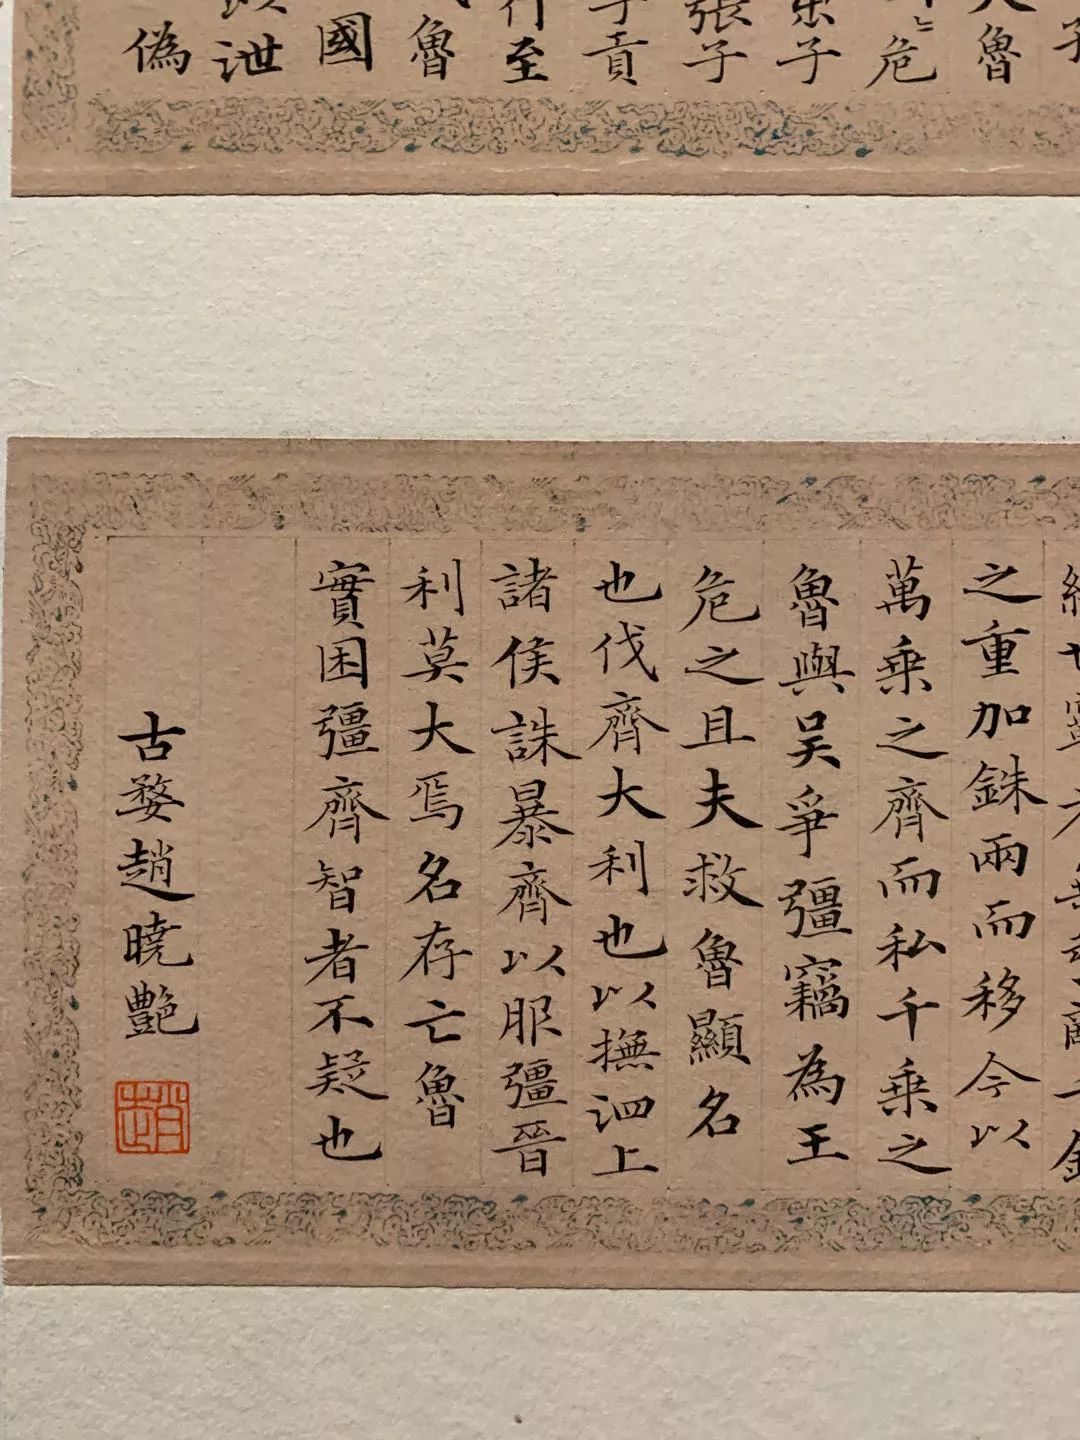 魯
危
子
張子
子貢
行至
魯
國
泄
偽
之重加銖兩而移今以
萬乘之齊而私千乘之
魯與吳爭彊竊為王
危之且夫救魯顯名
也伐齊大利也以撫泗上
諸侯誅暴齊以服彊晉
利莫大焉名存亡魯
實困彊齊智者不疑也
古婺趙曉艷
趙